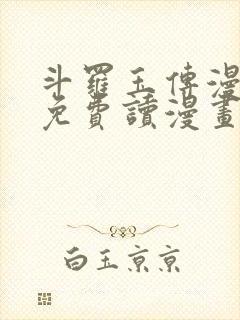 斗羅玉傳漫
免費讀漫畫
白玉京京